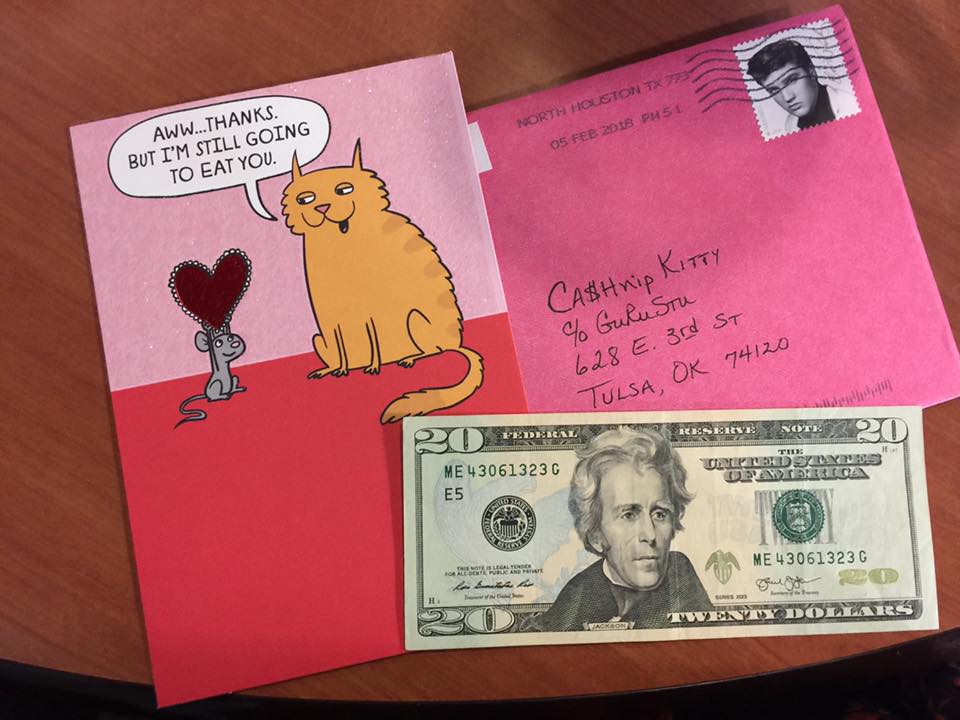 AWW...THANKS.
BUT I'M STILL GOING
TO EAT YOU.
NORTH HOUSTON TX 773
05 FEB 2018 PM 5 1
CA$Hnip Kitty
c/o GuRuStu
628 E. 3rd ST
TULSA, OK 74120
20
FEDERAL RESERVE NOTE
20
THE
UNITED STATES
OF AMERICA
ME 43061323 G
E5
THIS NOTE IS LEGAL TENDER
FOR ALL DEBTS, PUBLIC AND PRIVATE
Treasurer of the United States
ME 43061323 G
20
SERIES 2013
Secretary of the Treasury
20
JACKSON
TWENTY DOLLARS